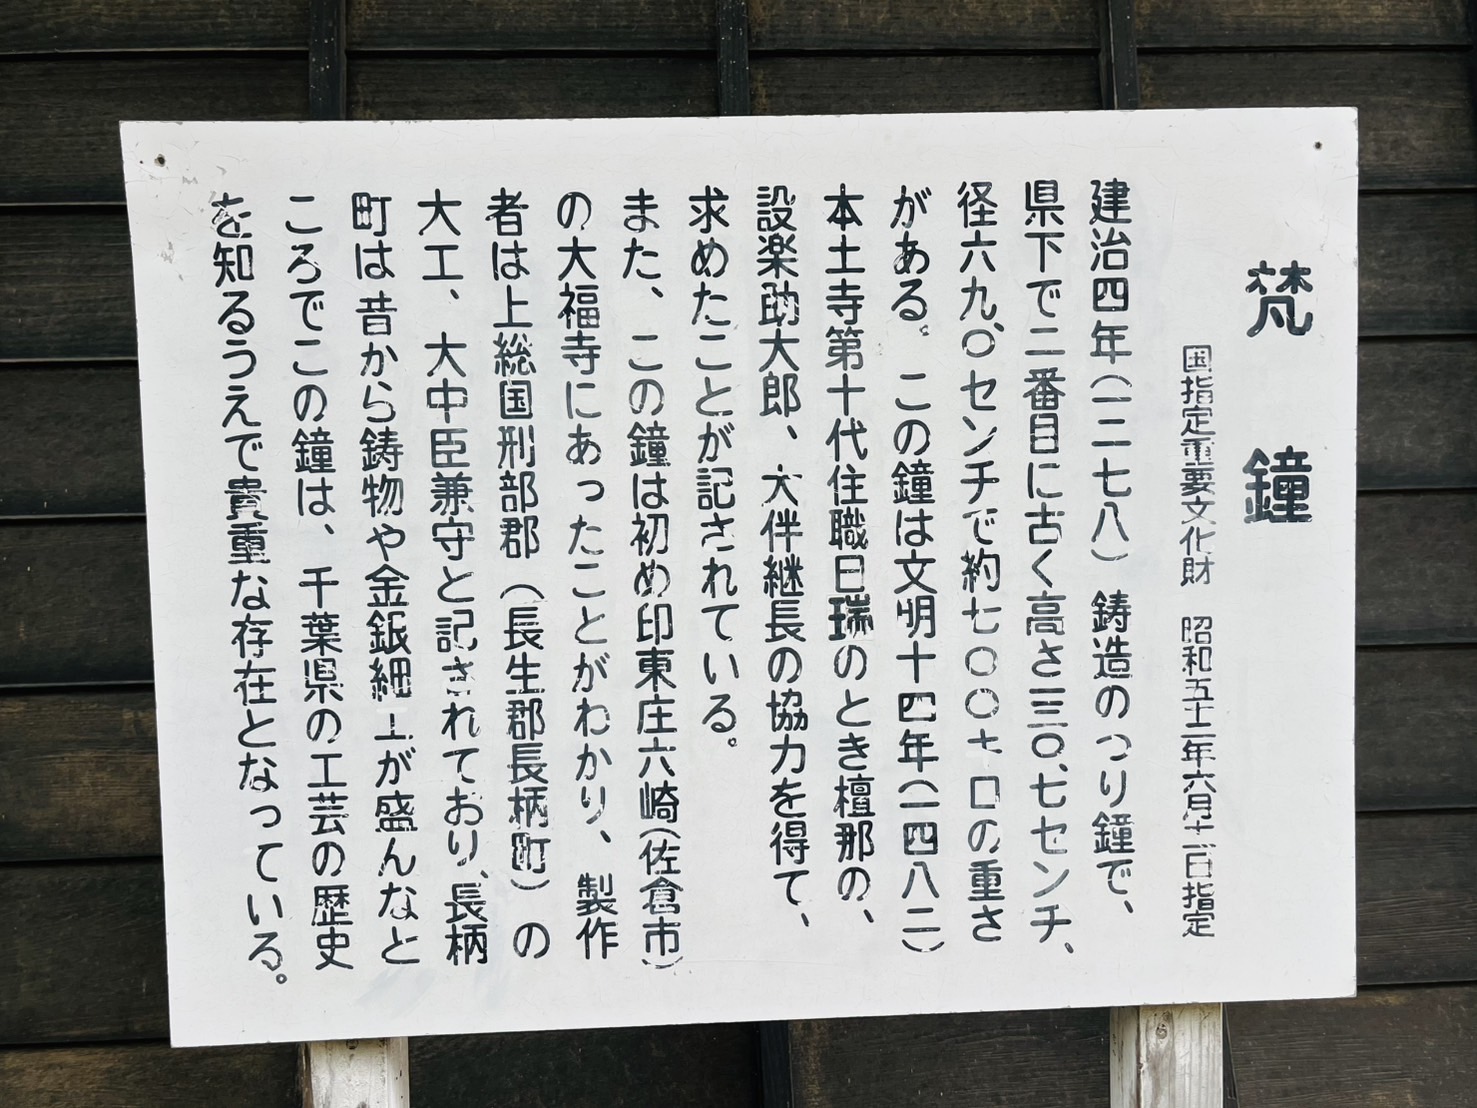 梵鐘
国指定重要文化財 昭和五十一年六月十一日指定
建治四年(一二七八)鋳造のつり鐘で、
県下で二番目に古く高さ一三〇、七センチ、
径六九、〇センチで約七〇〇キロの重さ
がある。この鐘は文明十四年(一四八二)
本土寺第十代住職日瑞のとき檀那の、
設楽助大郎、大伴継長の協力を得て、
求めたことが記されている。
また、この鐘は初め印東庄六崎(佐倉市)
の大福寺にあったことがわかり、製作
者は上総国刑部郡(長生郡長柄町)の
大工、大中臣兼守と記されており、長柄
町は昔から鋳物や金銀細工が盛んなと
ころでこの鐘は、千葉県の工芸の歴史
を知るうえで貴重な存在となっている。